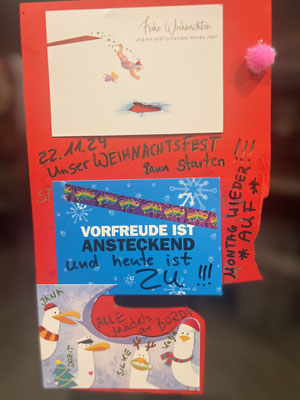 Frohe Weihnachten
und ein erfrischendes neues Jahr
22.11.24
Unser WEIHNACHTSFEST
kann starten !!!
VORFREUDE IST
ANSTECKEND
und heute ist
ZU !!!
MONTAG WIEDER
* AUF *
ALLE
Mädels
an BORD!
JANA
DORIT
SILKE